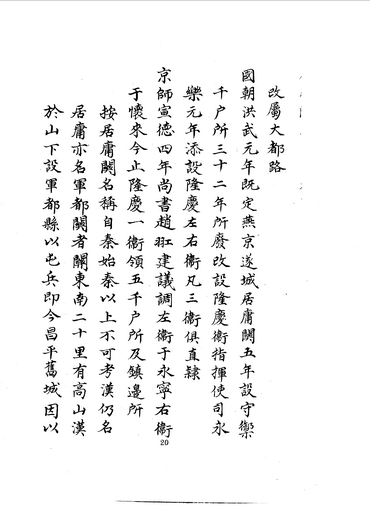 改屬大都路
國朝洪武元年既定燕京遂城居庸關五年設守禦
千戶所三十二年所廢改設隆慶衞指揮使司永
樂元年添設隆慶左右衞凡三衞俱直隷
京師宣德四年尚書趙羾建議調左衞于永寧右衞
于懷來今止隆慶一衞領五千戶所及鎮邊所
按居庸關名稱自秦始秦以上不可考漢仍名
居庸亦名軍都關者關東南二十里有高山漢
於山下設軍都縣以屯兵即今昌平舊城因以
20